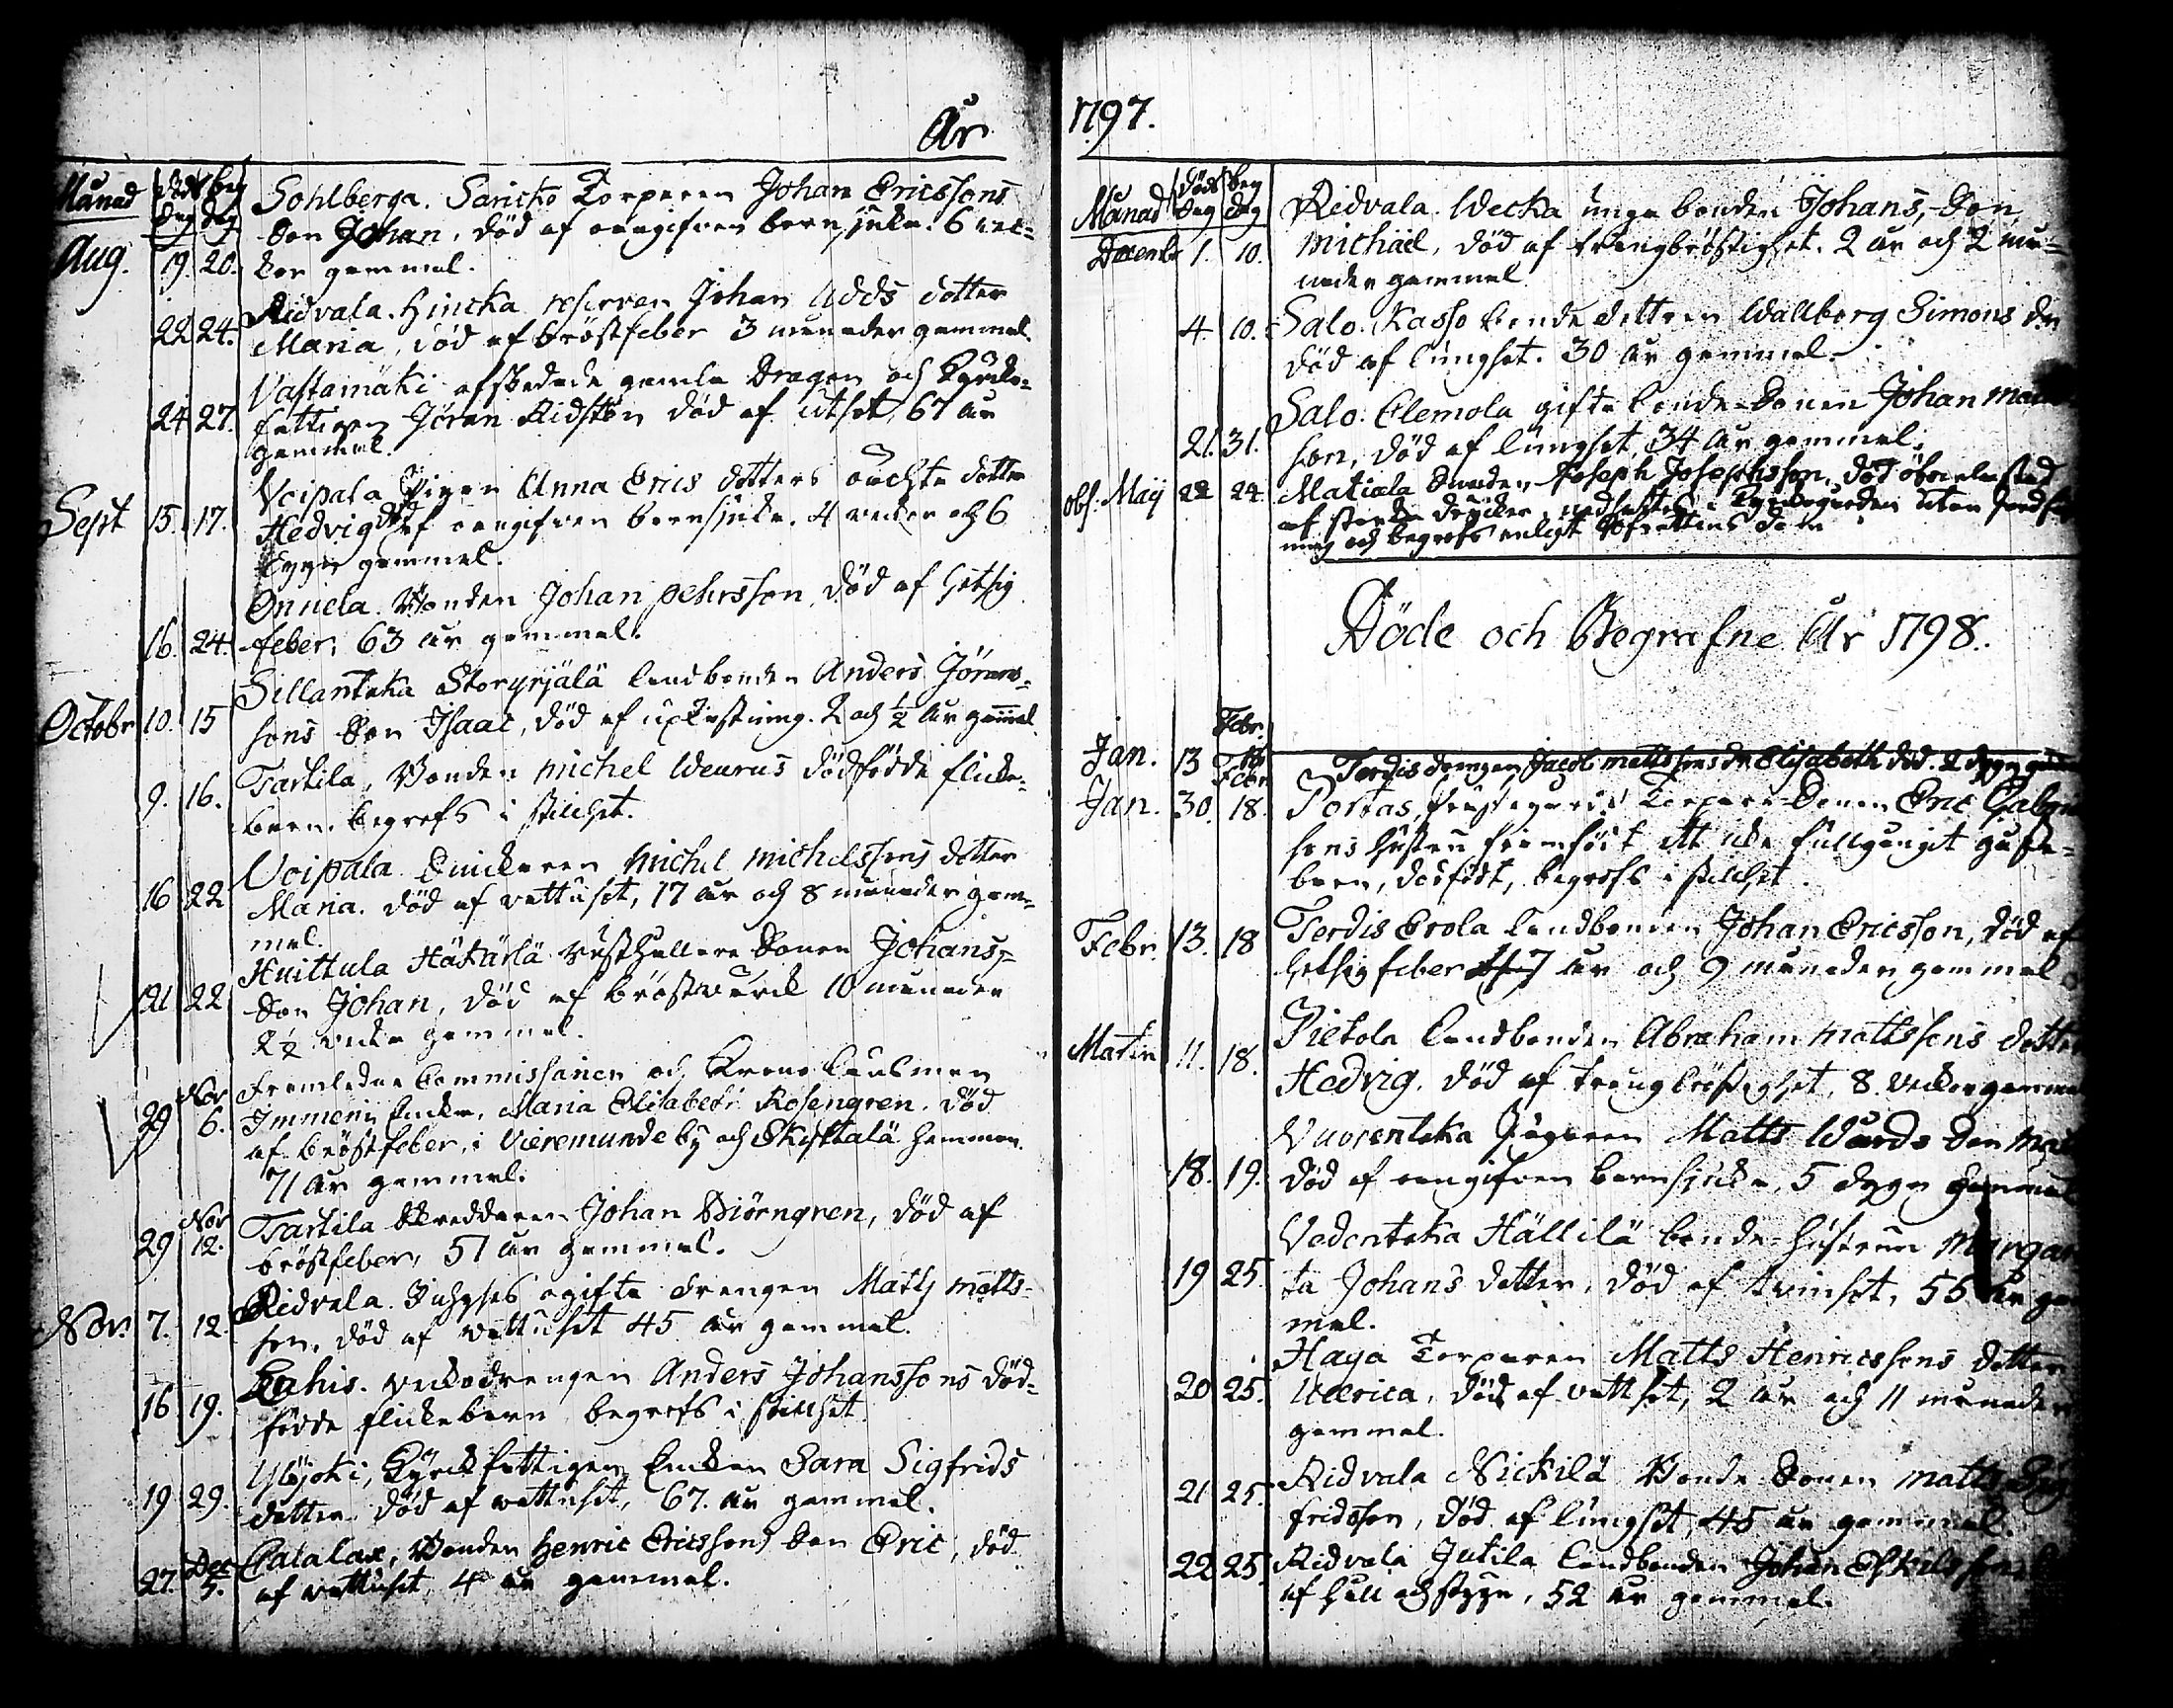 År
Månad döds dag beg dag
Sohlberga. Saricko Torparen Johan Ericssons
Aug. 19. 20. Son Johan, död af oangifven barnsjuka. 6 vec-
kor gammal.
Ridvala. Hincka reserven Johan Udds dotter
22 24. Maria, död af bröstfeber 3 månader gammal.
Vastamäki afskedade gamla Dragon och Kyrko-
24 27. fattigen Jöran Ridsten död af utsot, 67 år
gammal.
Voipala Pigan Anna Erics dotters oächta dotter
Sept 15. 17. Hedvig död af oangifven barnsjuka. 4 veckor och 6
dygn gammal.
Onnela. Bonden Johan Pehrsson, död af hetsig
16. 24. feber, 63 år gammal.
Sillantaka Storyrjälä landbonden Anders Jörans-
Octobr 10. 15 sons Son Isaac, död af 2 och ½ år gammal
Tarttila, Bonden Michel Weurus dödfödde flicke-
9. 16. barn. begrofs i stillhet.
Voipala Michel Michelssons dotter
16 22 Maria. död af vattusot, 17 år och 8 månader gam-
mal.
Huittula Häkärlä Rusthållare Sonen Johans
21 22 Son Johan, död af bröstvärck 10 månader
2½ vecka gammal.
Framledne Commissarien och Krono Länsman
29 Nov 6. Immeni Encka, Maria Elisabeth Rosengren. död
af bröstfeber, i Vieremunde by och Skyttälä hemman.
71 år gammal.
29 Nov 12. Tarttila Skreddaren Johan Biörngren, död af
bröstfeber, 51 år gammal.
Ridvala. ogifte drengen Matts Matts-
Nov: 7. 12. son, död af vattusot 45 år gammal.
Lahis. drengen Anders Johanssons död-
16 19. födde flickebarn begrofs i stillhet.
Ylöjoki, Kyrckfattigen Enckan Sara Sigfrids
19 29. dotter död af vattusot, 67. år gammal.
Caialax, Bonden Henric Ericssons Son Eric, död
27. Dec 5. af vattusot, 4 år gammal.
1797.
Månad döds dag beg dag
Ridvala. Wecka unga bonden Johans, Son
Decembr 1. 10. Michaël, död af trångbröstighet. 2 år och 2 må-
nader gammal
4. 10. Salo. Kasso bonde dottren Wallborg Simons dr
död af lungsot. 30 år gammal.
Salo. Clemola gifte bonde Sonen Johan
21. 31. son, död af lungsot, 34 år gammal.
obs. Maij 22 24. Matiala Joseph Josephsson, död
af starka drycker, nedsattes i Kyrkogården utan
ning och begrofs enligt Hofrättens dom
Döde och Begrafne År 1798.
Febr.
Jan. 13 Terdis drengen Jacob Mattssons dr Elisabeth död. 2 dygn
Febr
Jan. 30. 18. Portas, Torpare Sonen Eric
sons hustru framfödt ett icke fullgångit gosse-
barn, dödfödt, begrofs i stillhet.
Febr. 13. 18 Terdis Erola Landbonden Johan Ericsson, död af
hetsig feber 7 år och 9 månader gammal
Pietola Landbonden Abraham Mattssons dotter
Martii 11. 18. Hedvig. död af trångbröstighet. 8. veckor
Vuorentaka Jägaren Matts Wards Son
18. 19. död af oangifven barnsjuka, 5 dygn gammal
Vedentaka Hällilä bonde-hustrun
19 25. ta Johans dotter, död af tvinsot, 55 år
mal.
Haga Torparen Matts Henricssons dotter
20 25. Ulrica, död af vattsot, 2 år och 11 månader
gammal.
Ridvala Nickilä Bonde Sonen Matts
21 25. fridsson, död af lungsot, 45 år gammal.
22 25. Ridvala Jutila landbonden Johan
af håll och stygn, 52 år gammal.